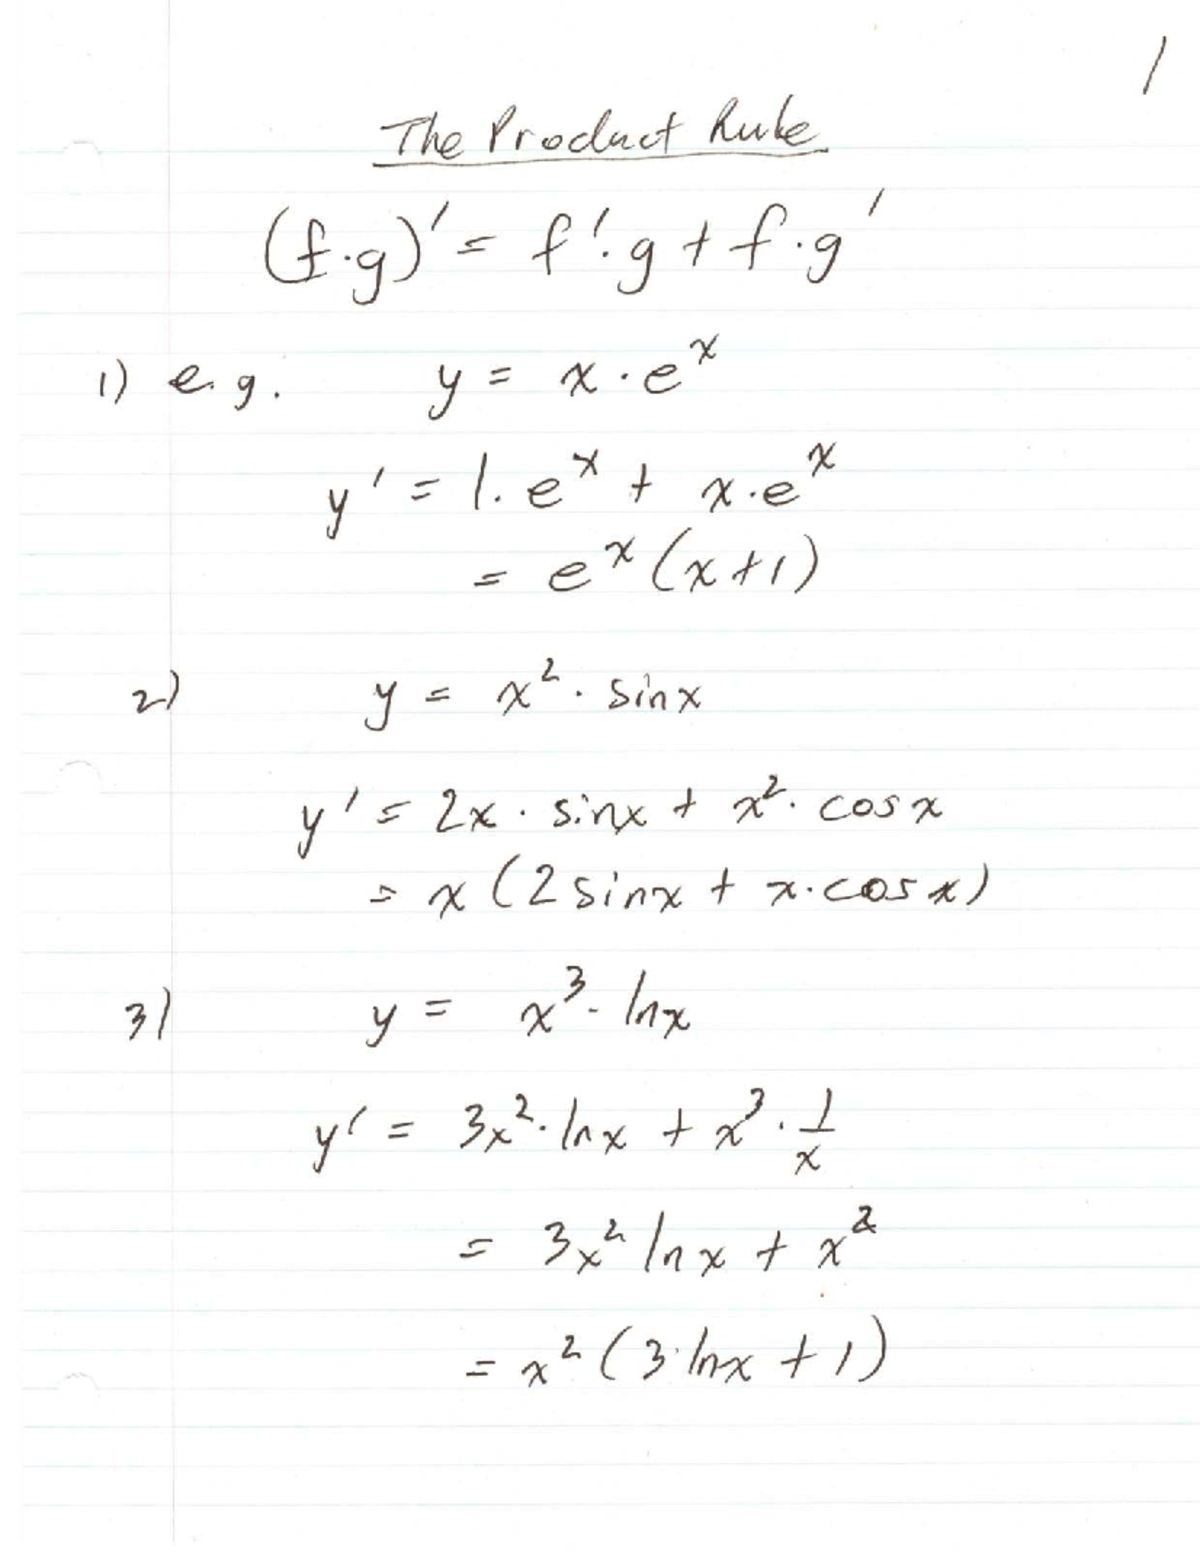 1
The Product Rule
(f·g)' = f'·g + f·g'
1) e.g. y = x·eˣ
y' = 1·eˣ + x·eˣ
= eˣ(x+1)
2) y = x²·sinx
y' = 2x·sinx + x²·cosx
= x(2sinx + x·cosx)
3) y = x³·lnx
y' = 3x²·lnx + x³·1/x
= 3x²lnx + x²
= x²(3·lnx + 1)